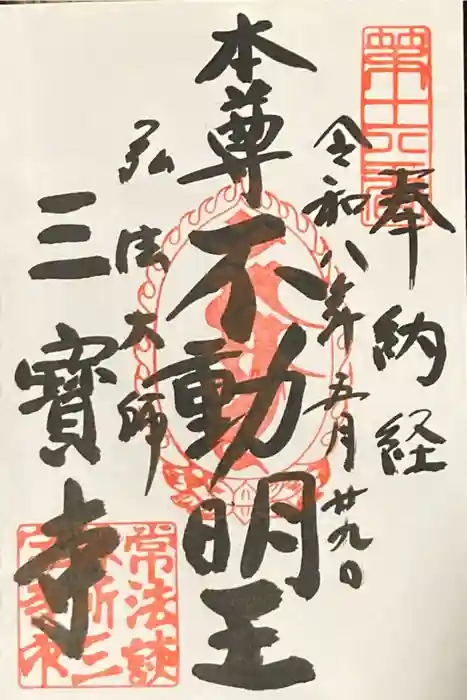 奉納経
令和八年五月廿九日
本尊不動明王
弘法大師
三寶寺